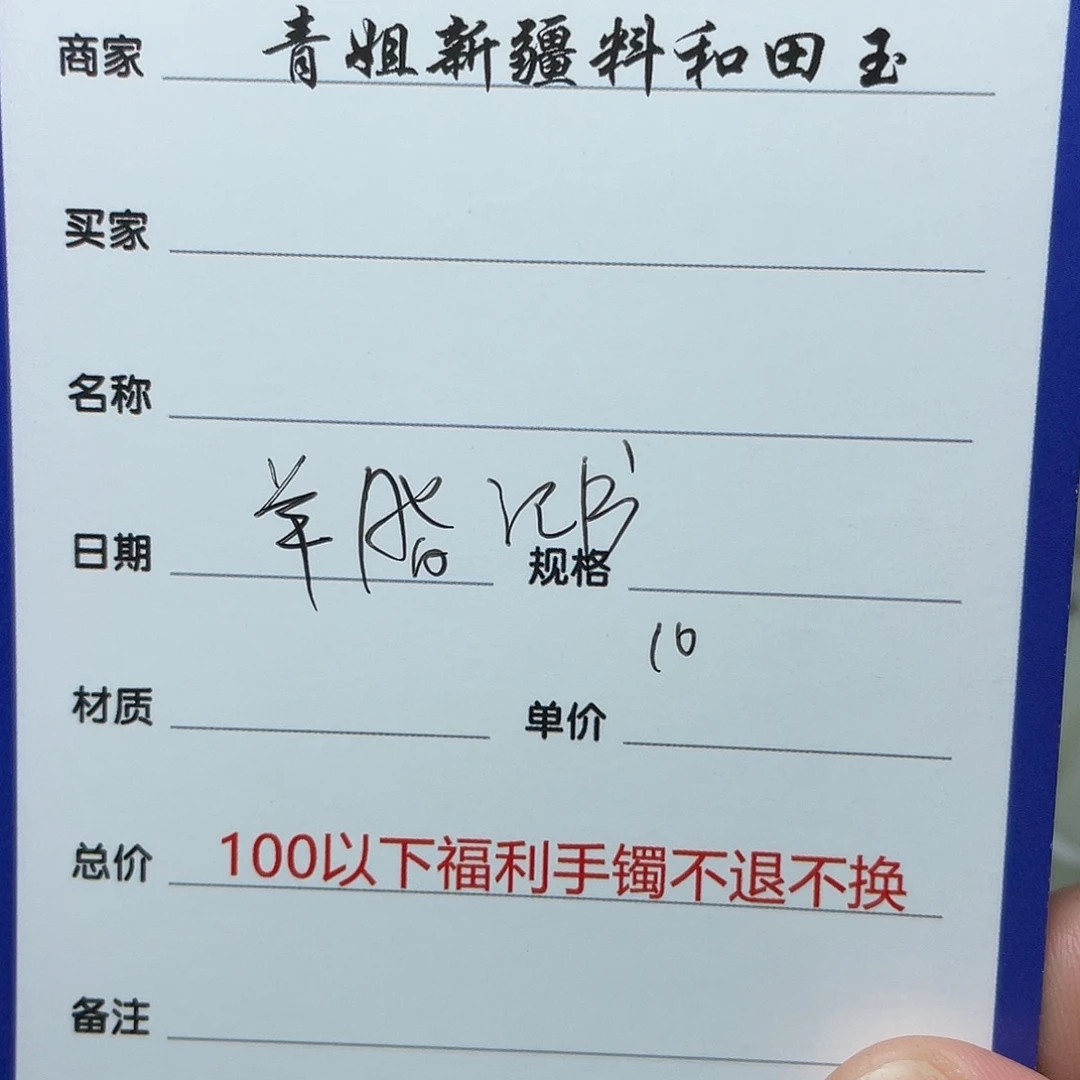 商家 青姐新疆料和田玉
买家
名称
羊脂
日期 规格
10
材质 单价
总价 100以下福利手镯不退不换
备注